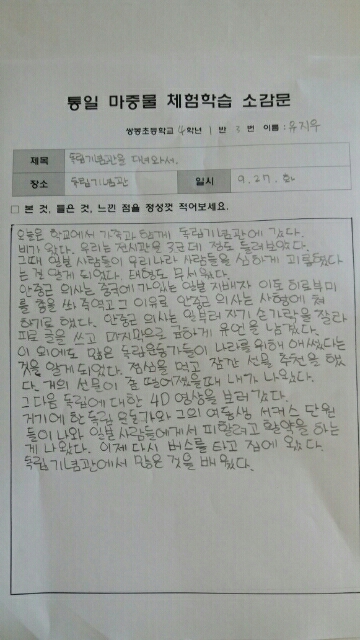 통일 마중물 체험학습 소감문
쌍봉초등학교 4학년 1 반 3 번 이름 : 유지우
제목 독립기념관을 다녀와서.
장소 독립기념관 일시 9.27. 화
□ 본 것, 들은 것, 느낀 점을 정성껏 적어보세요.
오늘은 학교에서 가족과 함께 독립기념관에 갔다.
비가 왔다. 우리는 전시관을 3군데 정도 둘러보았다.
그때 일본 사람들이 우리나라 사람들을 심하게 괴롭혔다
는 걸 알게 되었다. 태형도 무서웠다.
안중근 의사는 중국에 가있는 일본 지배자 이토 히로부미
를 총을 쏴 죽였고 그 이유로 안중근 의사는 사형에 처
하기로 했다. 안중근 의사는 일부러 자기 손가락을 잘라
피로 글을 쓰고 마지막으로 급하게 유언을 남겼다.
이 외에도 많은 독립운동가들이 나라를 위해 애쓰셨다는
것을 알게 되었다. 점심을 먹고 잠깐 선물 추첨을 했
다. 거의 선물이 다 떨어졌을때 내가 나왔다.
그다음 독립에 대한 4D영상을 보러갔다.
거기에 한 독립 운동가와 그의 여동생 서커스 단원
들이 나와 일본 사람들에게서 피할려고 활약을 하는
게 나왔다. 이제 다시 버스를 타고 집에 왔다.
독립기념관에서 많은 것을 배웠다.